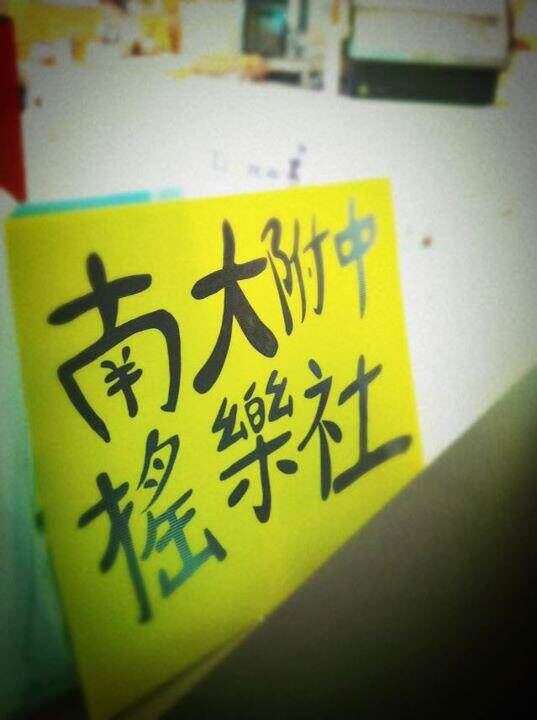 南大附中
搖樂社